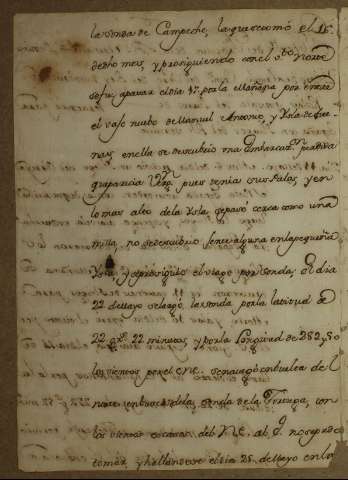 la sonda de Campeche, la que se tomó el 15
de dho mes, y prosiguiendo con el dho
se fue a pasar el día 17. por la Mañana por entre
el vajo nuebo de Manuel Antonio, y Ysla de Are-
nas, en ella se descubrio una embarcaon perdida
que parecía pues tenia cruz Palos, y en
lo mas alto de la Ysla, se pasó cerca como una
milla, no se descubrio Jente alguna en la pequeña
Ysla, y se prosiguio el viage por Sonda, el dia
22 de Mayo se dejó la sonda por la latitud de
22 gs. 22 minutos, y por la Longitud de 282,50
los vientos por el ene. se navegó con buelta del
norte en busca de la sonda de la Tortuga, con
los vientos escasos del NE. al no se pudo
tomar, y hallandose el dia 25 de Mayo en la